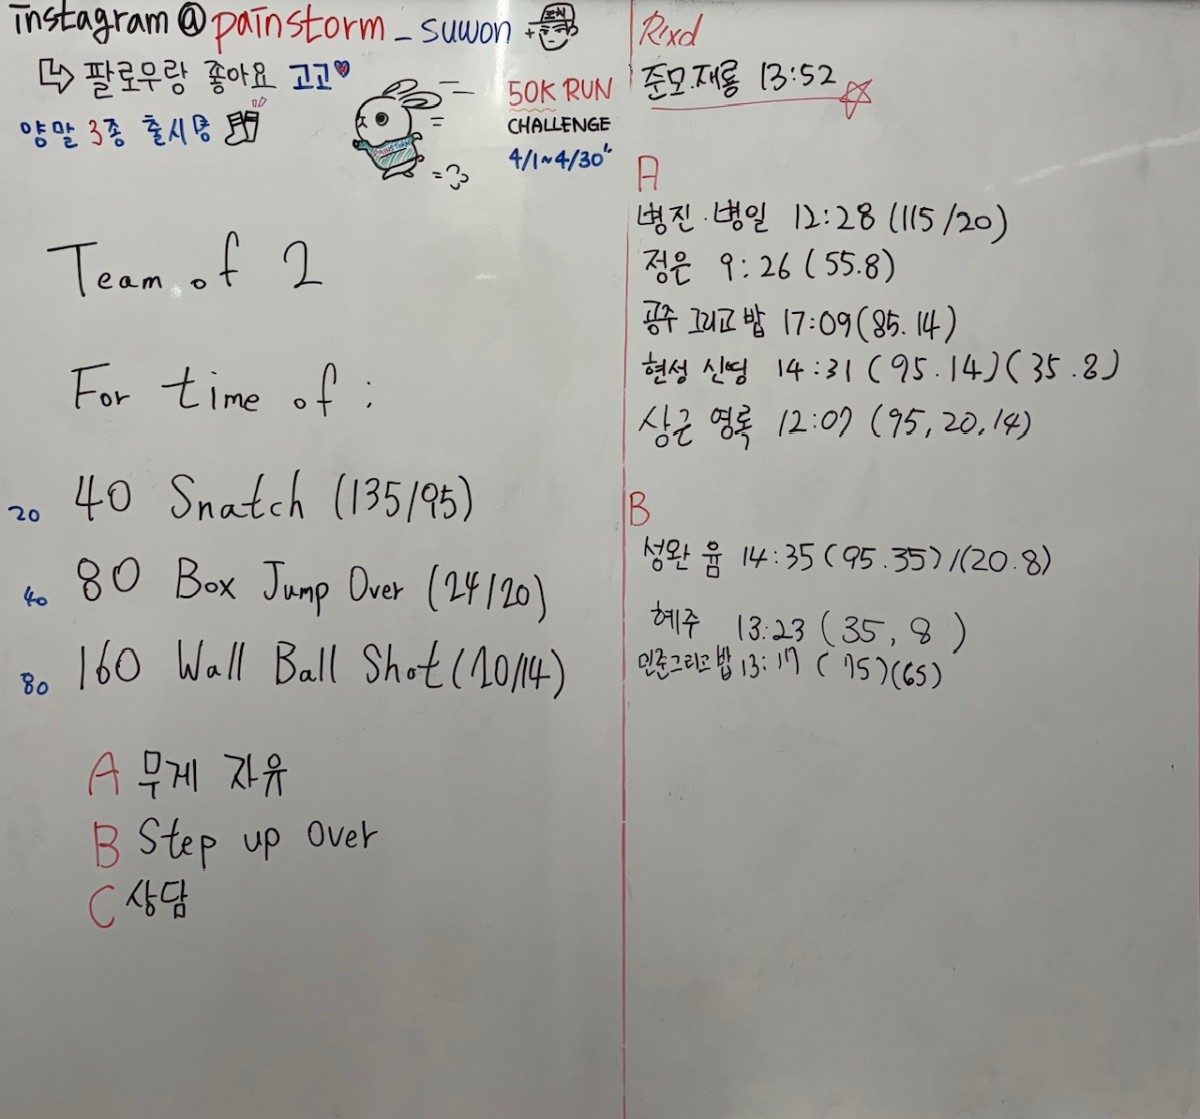 instagram@painstorm_suwon
팔로우랑 좋아요 고고
양말 3종 출시중
PAINSTORM
50K RUN
CHALLENGE
4/1~4/30
Team of 2
For time of :
20 40 Snatch (135/95)
40 80 Box Jump Over (24/20)
80 160 Wall Ball Shot (20/14)
A 무게 자유
B Step up over
C 상담
Rxd
준모.재룡 13:52
A
병진.병일 12:28 (115/20)
정은 9:26 (55.8)
공주 그리고 밥 17:09 (85.14)
현성 신띵 14:31 (95.14)(35.8)
상근 영록 12:07 (95,20,14)
B
성완 윰 14:35 (95.35)/(20.8)
혜주 13:23 (35,8)
민준그리고밥 13:17 (75)(65)